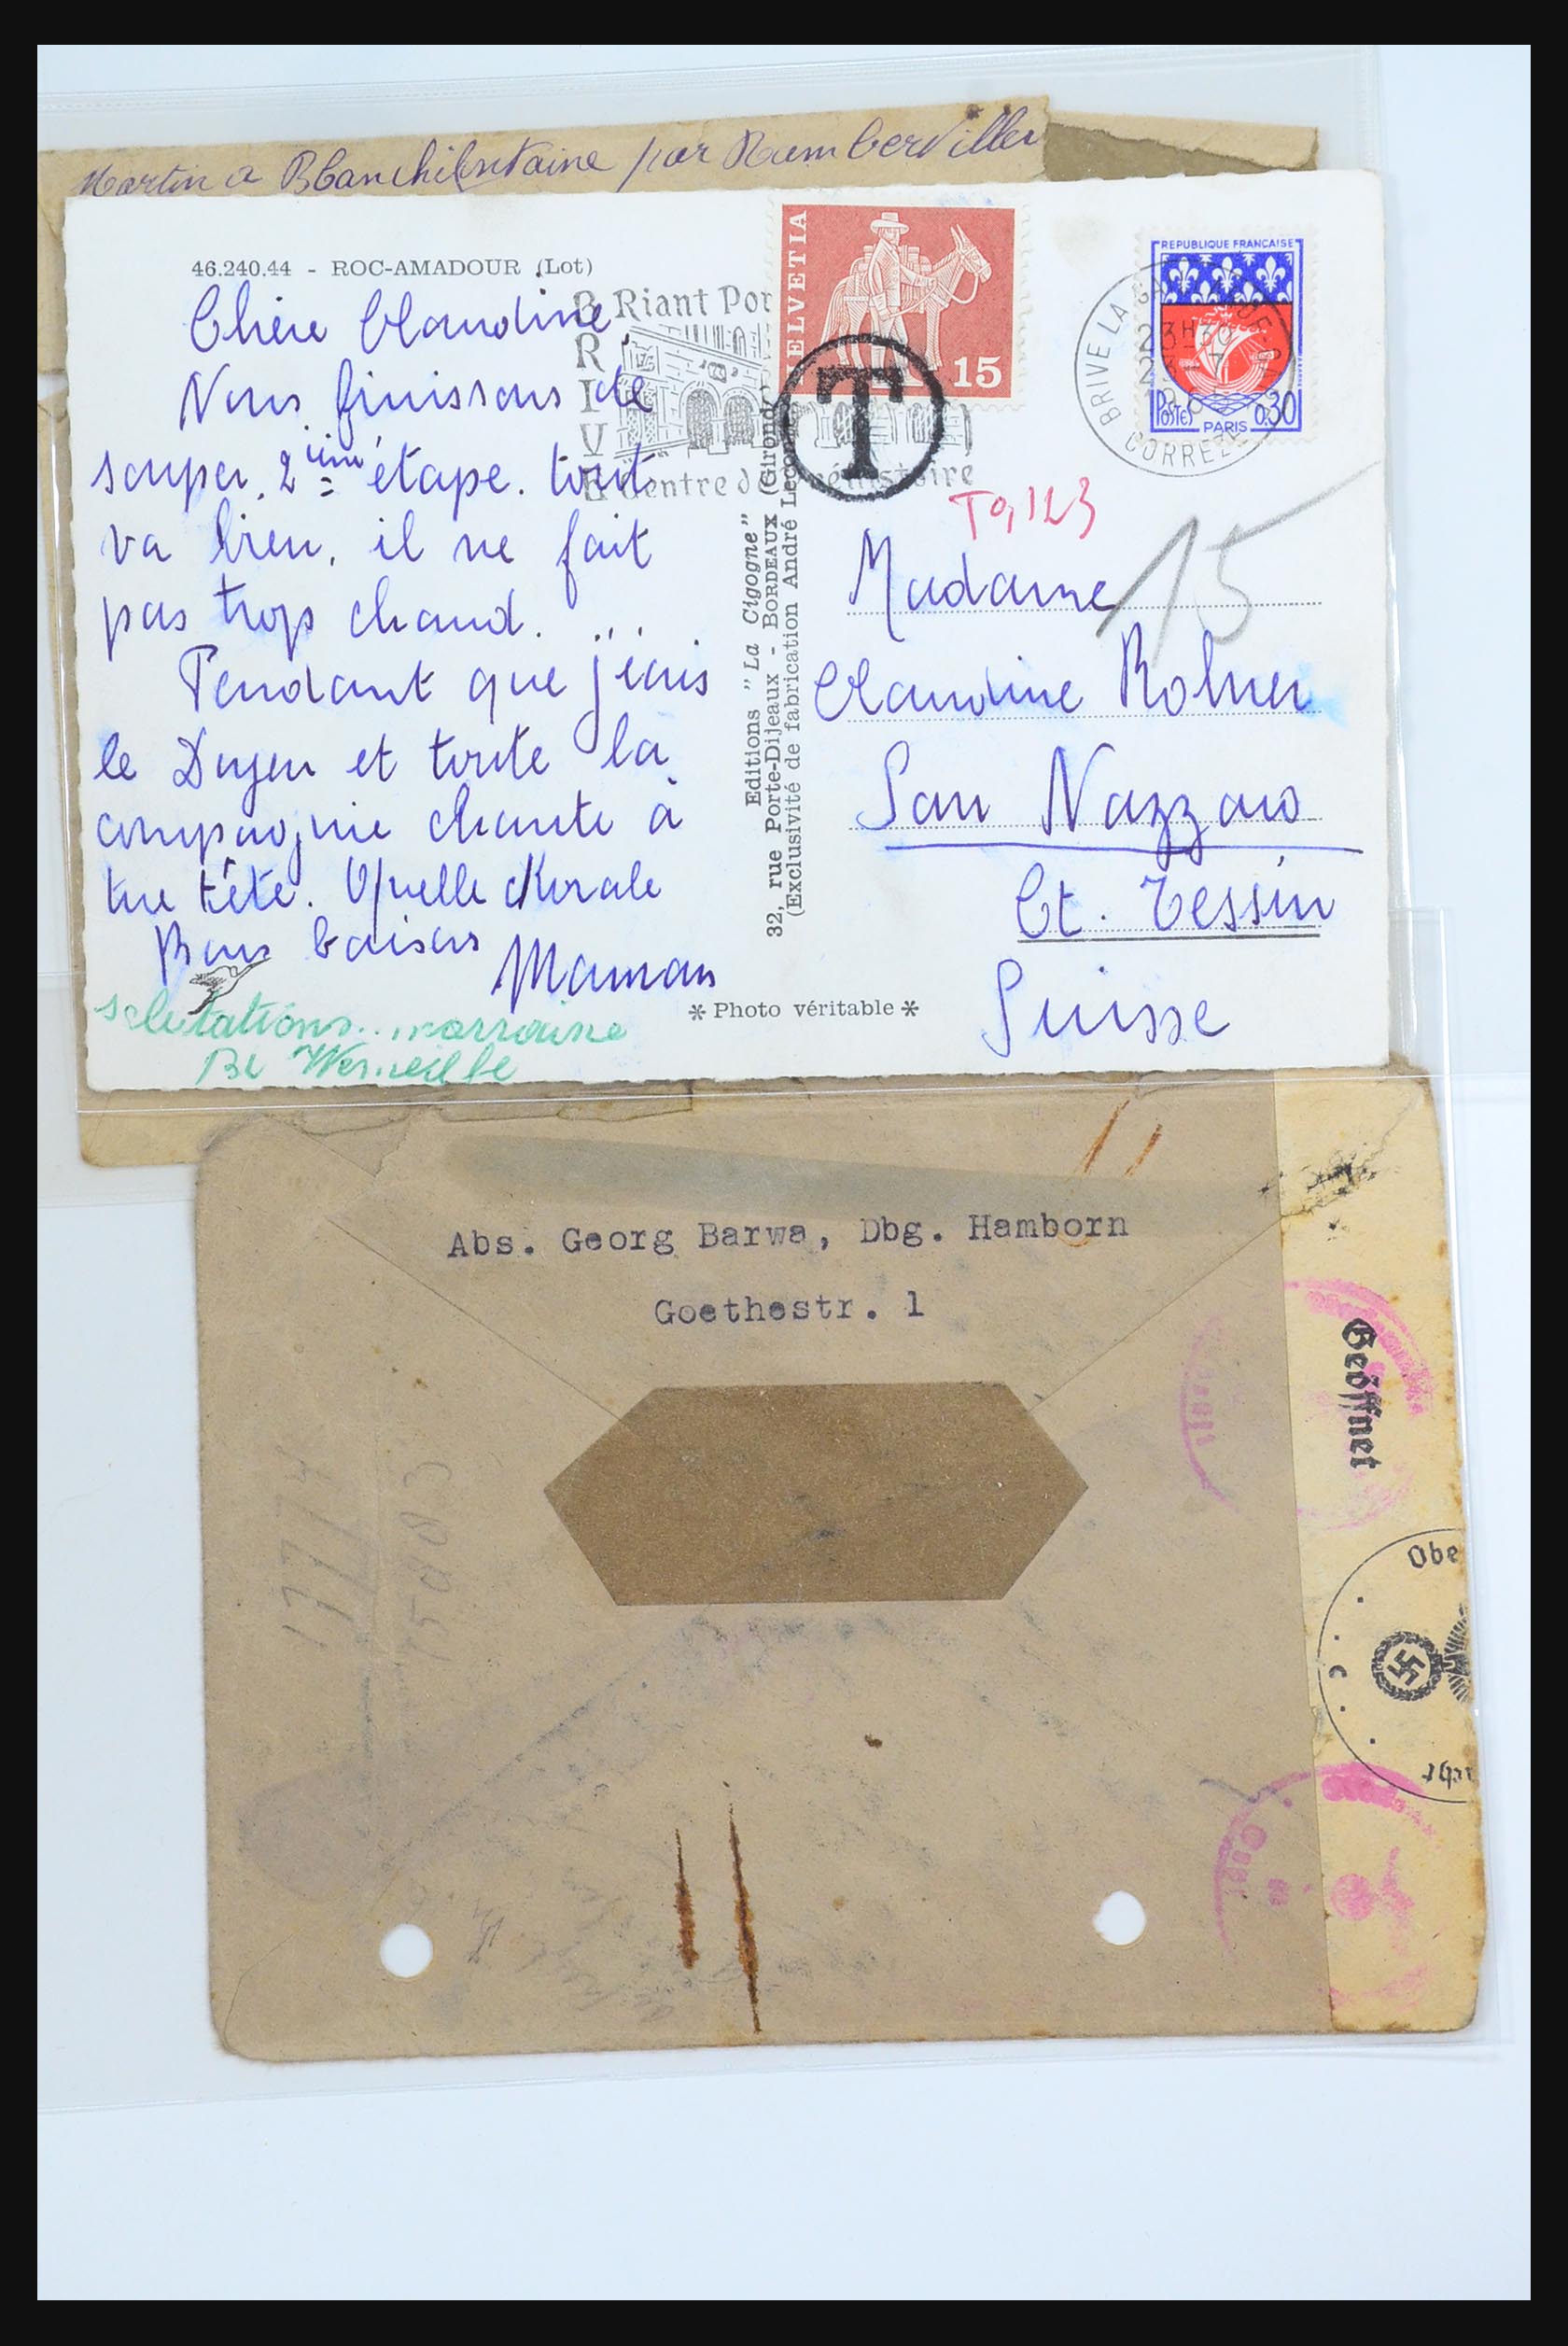 Martin a Blanchifontaine par Rambervillers
46.240.44 - ROC-AMADOUR (Lot)
Chère Claudine,
Nous finissons de
souper. 2ième étape. tout
va bien, il ne fait
pas trop chaud. ...
Pendant que j'écris
le Doyen et toute la
compagnie chante à
tue tête. Quelle chorale
Bons baisers Maman
salutations.. marraine
Bl
BRIVE
Riant Por
Centre de préhistoire
HELVETIA
15
T
T0,123
15
REPUBLIQUE FRANÇAISE
POSTES
0,30
PARIS
BRIVE LA GA
23H30
CORREZE
Editions "La Cigogne"
32, rue Porte-Dijeaux - BORDEAUX (Gironde)
(Exclusivité de fabrication André Leconte)
Madame
Claudine Rohner
San Nazzaro
Ct. Tessin
Suisse
* Photo véritable *
Abs. Georg Barwa, Dbg. Hamborn
Goethestr. 1
Geöffnet
Obe
c
1774